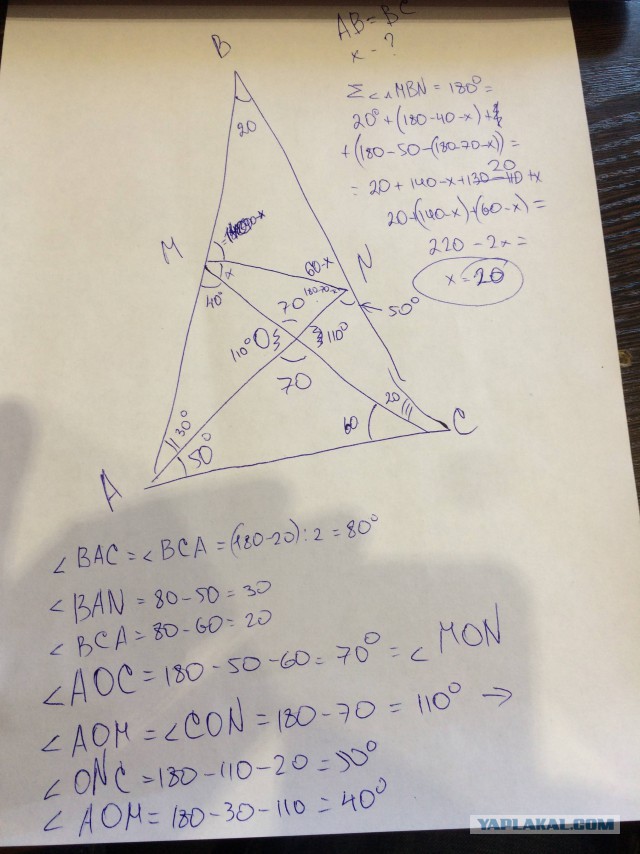 AB = BC
x - ?
Σ∠ΔMBN = 180° =
20° + (180-40-x) +
+(180-50-(180-70-x)) =
20
= 20 + 140 - x + 130 - 110 + x
20+(140-x)+(60-x) =
220 - 2x =
x = 20
B
20
M
-x
x
40°
60-x
N
180-70-x
50°
70
110°
O
110°
70
30°
50°
60
20
A
C
∠BAC = ∠BCA = (180-20):2 = 80°
∠BAN = 80-50 = 30
∠BCA = 80-60 = 20
∠AOC = 180-50-60 = 70° = ∠MON
∠AOM = ∠CON = 180-70 = 110° →
∠ONC = 180-110-20 = 50°
∠AOM = 180-30-110 = 40°
YAPLAKAL.COM